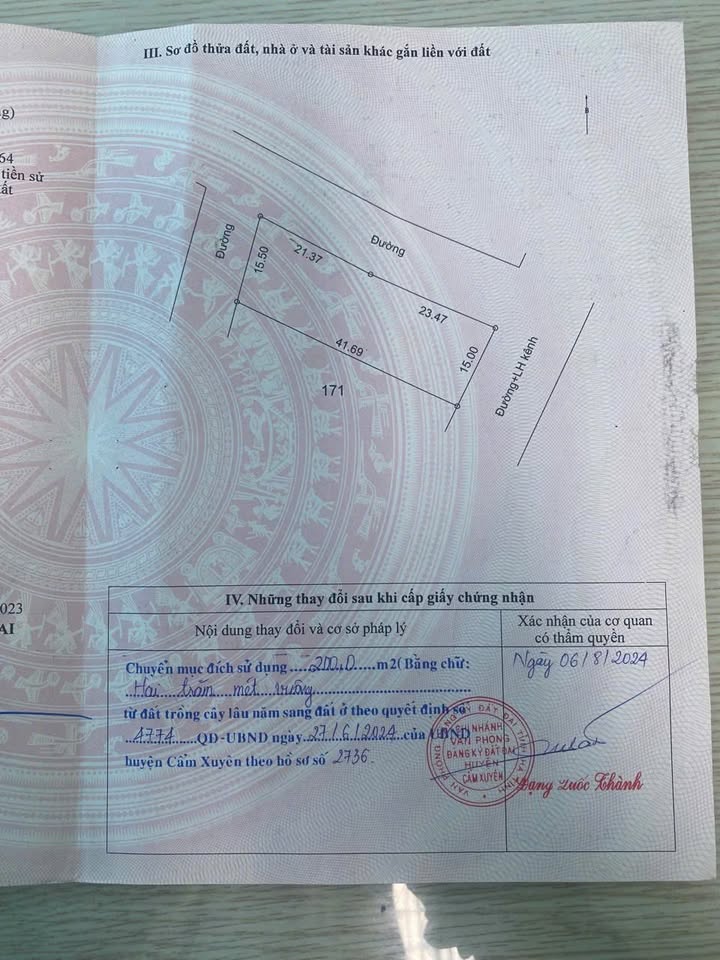 III. Sơ đồ thửa đất, nhà ở và tài sản khác gắn liền với đất
g)
64
tiền sử
ất
Đường
15.50
21.37
Đường
23.47
41.69
15.00
Đường+LH kênh
171
023
AI
IV. Những thay đổi sau khi cấp giấy chứng nhận
Nội dung thay đổi và cơ sở pháp lý
Xác nhận của cơ quan
có thẩm quyền
Chuyển mục đích sử dụng.....200,0.....m2( Bằng chữ:
...Hai trăm mét vuông...
từ đất trồng cây lâu năm sang đất ở theo quyết định số
..4774......QĐ-UBND ngày..27/6/2024..của UBND
huyện Cẩm Xuyên theo hồ sơ số 2736.
Ngày 06/8/2024
VĂN PHÒNG ĐĂNG KÝ ĐẤT ĐAI TỈNH HÀ TĨNH
CHI NHÁNH
VĂN PHÒNG
ĐĂNG KÝ ĐẤT ĐAI
HUYỆN
CẨM XUYÊN
Đặng Quốc Thành